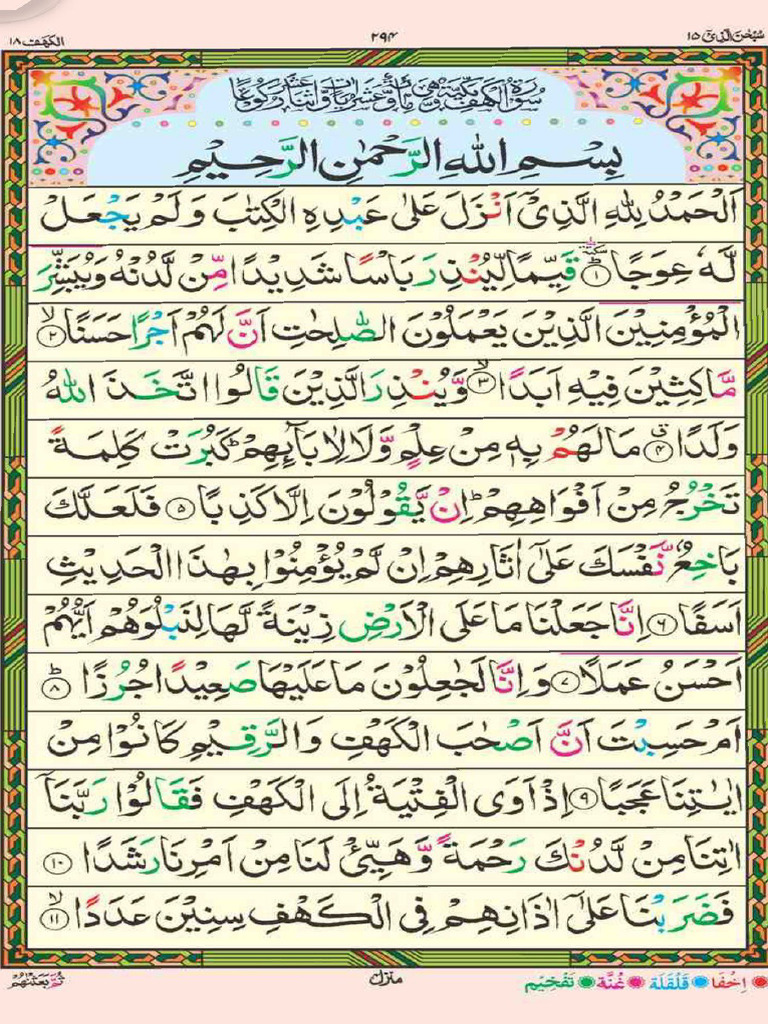 سُبْحٰنَ الَّذِیْۤ ۱۵
۲۹۴
الکهف ۱۸
سُوْرَةُ الْكَهْفِ مَكِّیَّةٌ وَّهِیَ مِائَةٌ وَّعَشْرُ اٰیَاتٍ وَّاثْنَا عَشَرَ رُكُوْعًا
بِسْمِ اللّٰهِ الرَّحْمٰنِ الرَّحِیْمِ
اَلْحَمْدُ لِلّٰهِ الَّذِیْۤ اَنْزَلَ عَلٰی عَبْدِهِ الْكِتٰبَ وَ لَمْ یَجْعَلْ
لَّهٗ عِوَجًا ؕ۱ قَیِّمًا لِّیُنْذِرَ بَاْسًا شَدِیْدًا مِّنْ لَّدُنْهُ وَ یُبَشِّرَ
الْمُؤْمِنِیْنَ الَّذِیْنَ یَعْمَلُوْنَ الصّٰلِحٰتِ اَنَّ لَهُمْ اَجْرًا حَسَنًا ۙ۲
مَّاكِثِیْنَ فِیْهِ اَبَدًا ۙ۳ وَّ یُنْذِرَ الَّذِیْنَ قَالُوا اتَّخَذَ اللّٰهُ
وَلَدًا ۗ۴ مَا لَهُمْ بِهٖ مِنْ عِلْمٍ وَّ لَا لِاٰبَآىِٕهِمْ ؕ كَبُرَتْ كَلِمَةً
تَخْرُجُ مِنْ اَفْوَاهِهِمْ ؕ اِنْ یَّقُوْلُوْنَ اِلَّا كَذِبًا ۵ فَلَعَلَّكَ
بَاخِعٌ نَّفْسَكَ عَلٰۤی اٰثَارِهِمْ اِنْ لَّمْ یُؤْمِنُوْا بِهٰذَا الْحَدِیْثِ
اَسَفًا ۶ اِنَّا جَعَلْنَا مَا عَلَی الْاَرْضِ زِیْنَةً لَّهَا لِنَبْلُوَهُمْ اَیُّهُمْ
اَحْسَنُ عَمَلًا ۷ وَ اِنَّا لَجٰعِلُوْنَ مَا عَلَیْهَا صَعِیْدًا جُرُزًا ؕ۸
اَمْ حَسِبْتَ اَنَّ اَصْحٰبَ الْكَهْفِ وَ الرَّقِیْمِ كَانُوْا مِنْ
اٰیٰتِنَا عَجَبًا ۹ اِذْ اَوَی الْفِتْیَةُ اِلَی الْكَهْفِ فَقَالُوْا رَبَّنَاۤ
اٰتِنَا مِنْ لَّدُنْكَ رَحْمَةً وَّ هَیِّئْ لَنَا مِنْ اَمْرِنَا رَشَدًا ۱۰
فَضَرَبْنَا عَلٰۤی اٰذَانِهِمْ فِی الْكَهْفِ سِنِیْنَ عَدَدًا ۙ۱۱
اِخْفَا قَلْقَلَة غُنَّة تَفْخِیْم
منزل
ثُمَّ بَعَثْنٰهُمْ